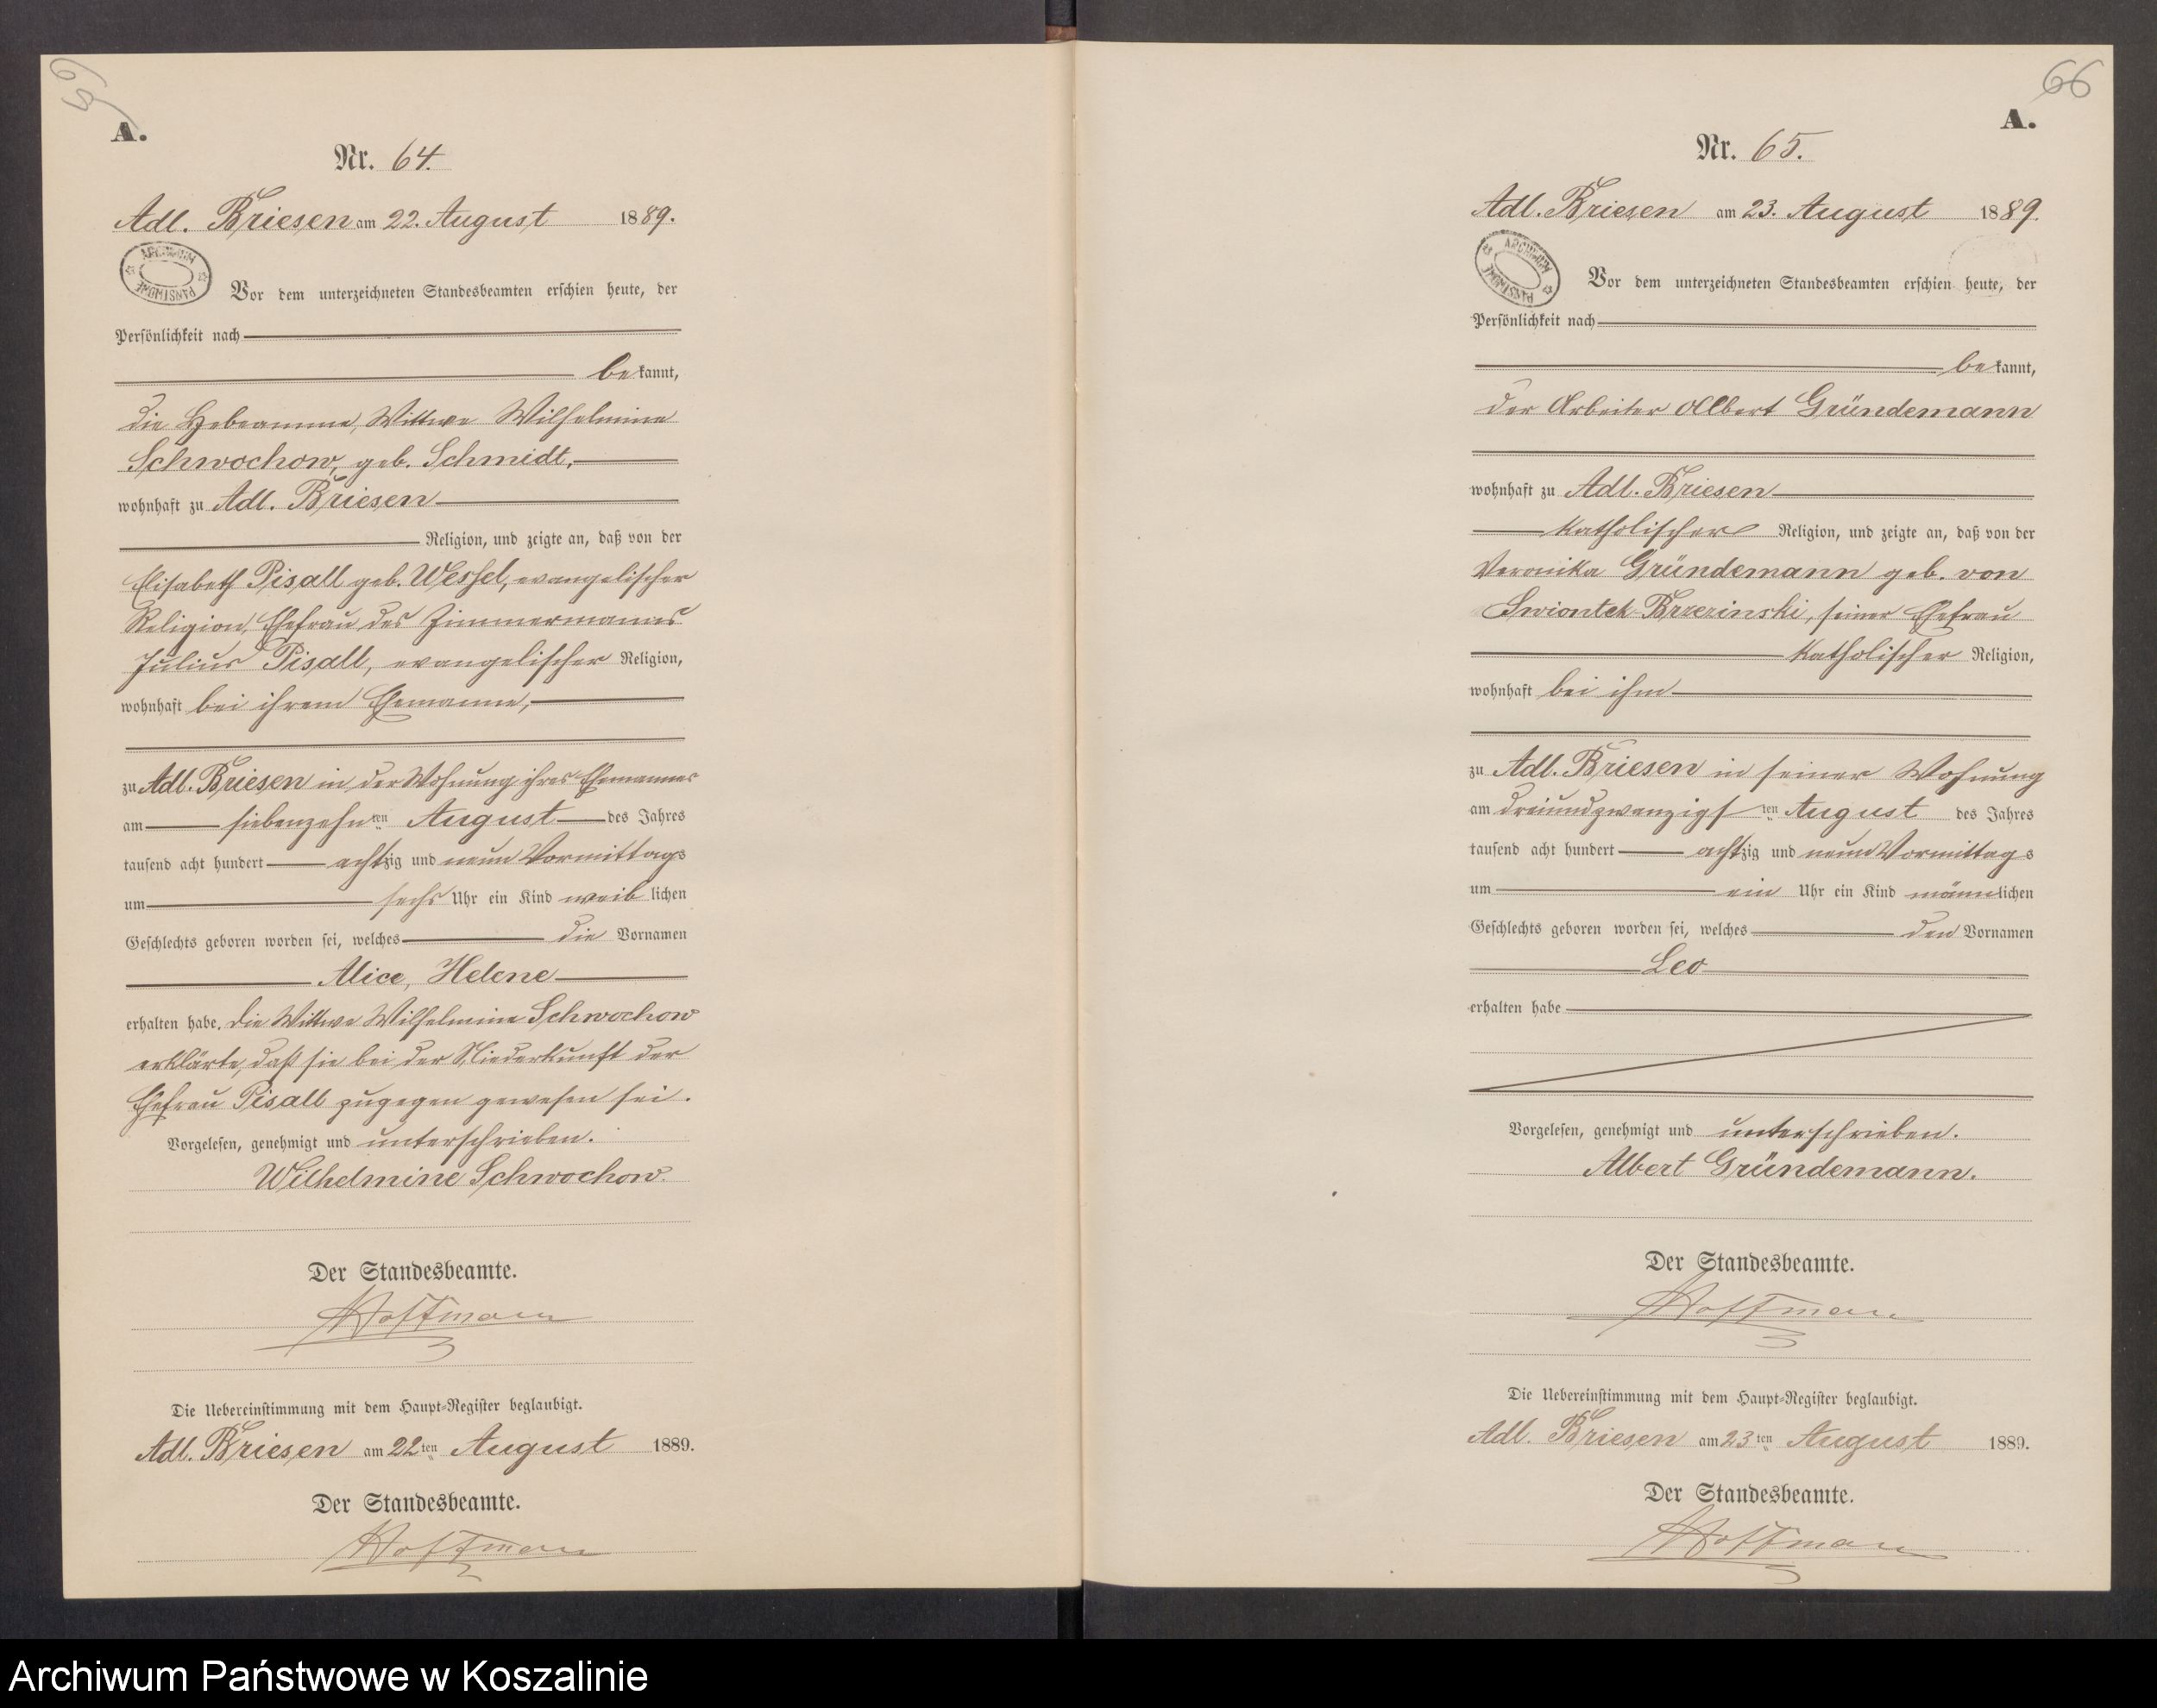 65
A.
Nr. 64.
Adl. Briesen am 22. August 1889.
ARCHIWUM PAŃSTWOWE
Vor dem unterzeichneten Standesbeamten erschien heute, der
Persönlichkeit nach
bekannt,
die Hebeamme, Wittwe Wilhelmine
Schwochow, geb. Schmidt,
wohnhaft zu Adl. Briesen
Religion, und zeigte an, daß von der
Elisabeth Pisall geb. Wessel, evangelischer
Religion, Ehefrau des Zimmermanns
Julius Pisall, evangelischer Religion,
wohnhaft bei ihrem Ehemanne,
zu Adl. Briesen in der Wohnung ihres Ehemannes
am siebenzehnten August des Jahres
tausend acht hundert achtzig und neun Vormittags
um sechs Uhr ein Kind weiblichen
Geschlechts geboren worden sei, welches die Vornamen
Alice, Helene
erhalten habe. Die Wittwe Wilhelmine Schwochow
erklärte, daß sie bei der Niederkunft der
Ehefrau Pisall zugegen gewesen sei.
Vorgelesen, genehmigt und unterschrieben.
Wilhelmine Schwochow.
Der Standesbeamte.
Hoffmann
Die Uebereinstimmung mit dem Haupt-Register beglaubigt.
Adl. Briesen am 22ten August 1889.
Der Standesbeamte.
Hoffmann
66
A.
Nr. 65.
Adl. Briesen am 23. August 1889.
ARCHIWUM PAŃSTWOWE
Vor dem unterzeichneten Standesbeamten erschien heute, der
Persönlichkeit nach
bekannt,
der Arbeiter Albert Gründemann
wohnhaft zu Adl. Briesen
katholischer Religion, und zeigte an, daß von der
Veronika Gründemann geb. von
Swiontek-Brzezinski, seiner Ehefrau
katholischer Religion,
wohnhaft bei ihm
zu Adl. Briesen in seiner Wohnung
am dreiundzwanzigsten August des Jahres
tausend acht hundert achtzig und neun Vormittags
um ein Uhr ein Kind männlichen
Geschlechts geboren worden sei, welches den Vornamen
Leo
erhalten habe
Vorgelesen, genehmigt und unterschrieben.
Albert Gründemann.
Der Standesbeamte.
Hoffmann
Die Uebereinstimmung mit dem Haupt-Register beglaubigt.
Adl. Briesen am 23ten August 1889.
Der Standesbeamte.
Hoffmann
Archiwum Państwowe w Koszalinie